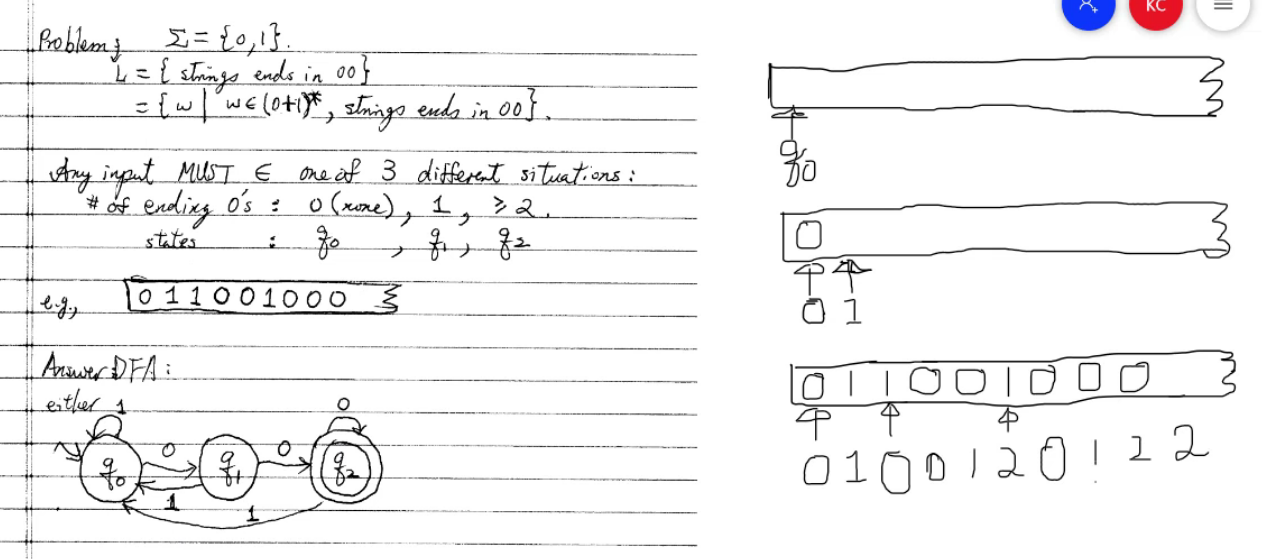 Problem: Σ = {0,1}.
L = { strings ends in 00}
= { w | w ∈ (0+1)*, strings ends in 00}.
Any input MUST ∈ one of 3 different situations:
# of ending 0's : 0 (none), 1, ≥ 2.
states : q0, q1, q2
e.g., 0 1 1 0 0 1 0 0 0
Answer DFA:
either
1 0
0 0
q0 q1 q2
1
1
KC
q0
0
0 1
0 1 1 0 0 1 0 0 0
0 1 0 0 1 2 0 1 2 2